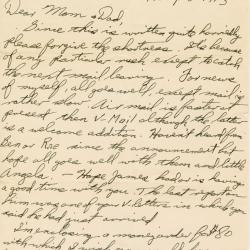 Dear Mom & Dad,
Since this is written quite horribly
please forgive the shortness. It's because
of any particular rush except to catch
the next mail leaving. For news
of myself, all goes well, except mail is
rather slow. Air mail is faster at
present then V-Mail although the letter
is a welcome addition. Haven't heard from
Len or Rae since the announcement of
hope all goes well with them and little
Angela. - Hope James had or is having
a good time with you. The last report on
him was one of your V-letters in which you
said he had just arrived
I'm enclosing a money order for $80
with which I wish you